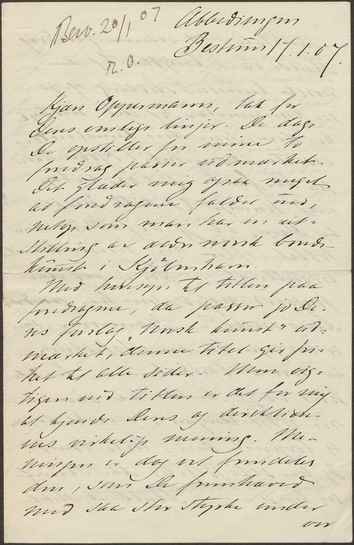 Besv. 20/1 07
Abbediengen
Bestum 17.1.07.
Kjære Oppermann, tak for
Deres venlige linjer. De dage
De opstiller for mine to
foredrag passer udmærket.
Det glæder mig ogsaa meget
at foredragene falder ind,
netop som man har en ud-
stilling av ældre norsk bonde-
kunst i Kjøbenhavn.
Med hensyn til titlen paa
foredragene, da passer jo De-
res forslag "Norsk kunst" ud-
mærket, denne titel gir fri-
het til alle sider. Men vig-
tigere end titlen er det for mig
at kjende Deres og direktio-
nens virkelige mening. Me-
ningen er dog vel fremdeles
den, som De fremhæved
med saa stor styrke under
vor